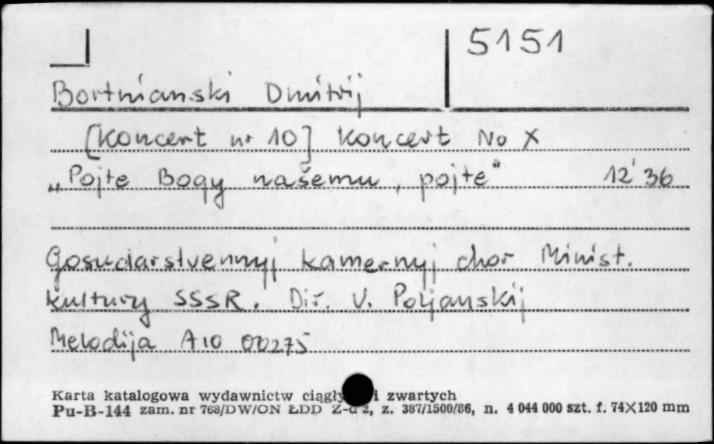 5151
Bortnianski Dmitrij
[Koncert nr 10] Koncert No X
„Pojte Bogy našemu, pojte" 12' 36
Gosudarstvennyj kamernyj chor Minist.
kultury SSSR. Dir. V. Poljanskij
Melodija A10 00275
Karta katalogowa wydawnictw i zwartych
Pu-B-144 zam. nr 768/DW/ON ŁDD 2, z. 387/1500/86, n. 4 044 000 szt. f. 74X120 mm